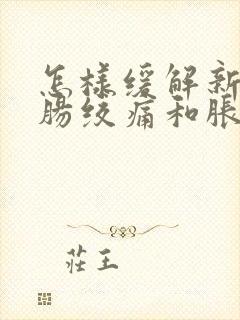 怎様緩解新
腸絞痛和脹
莊王